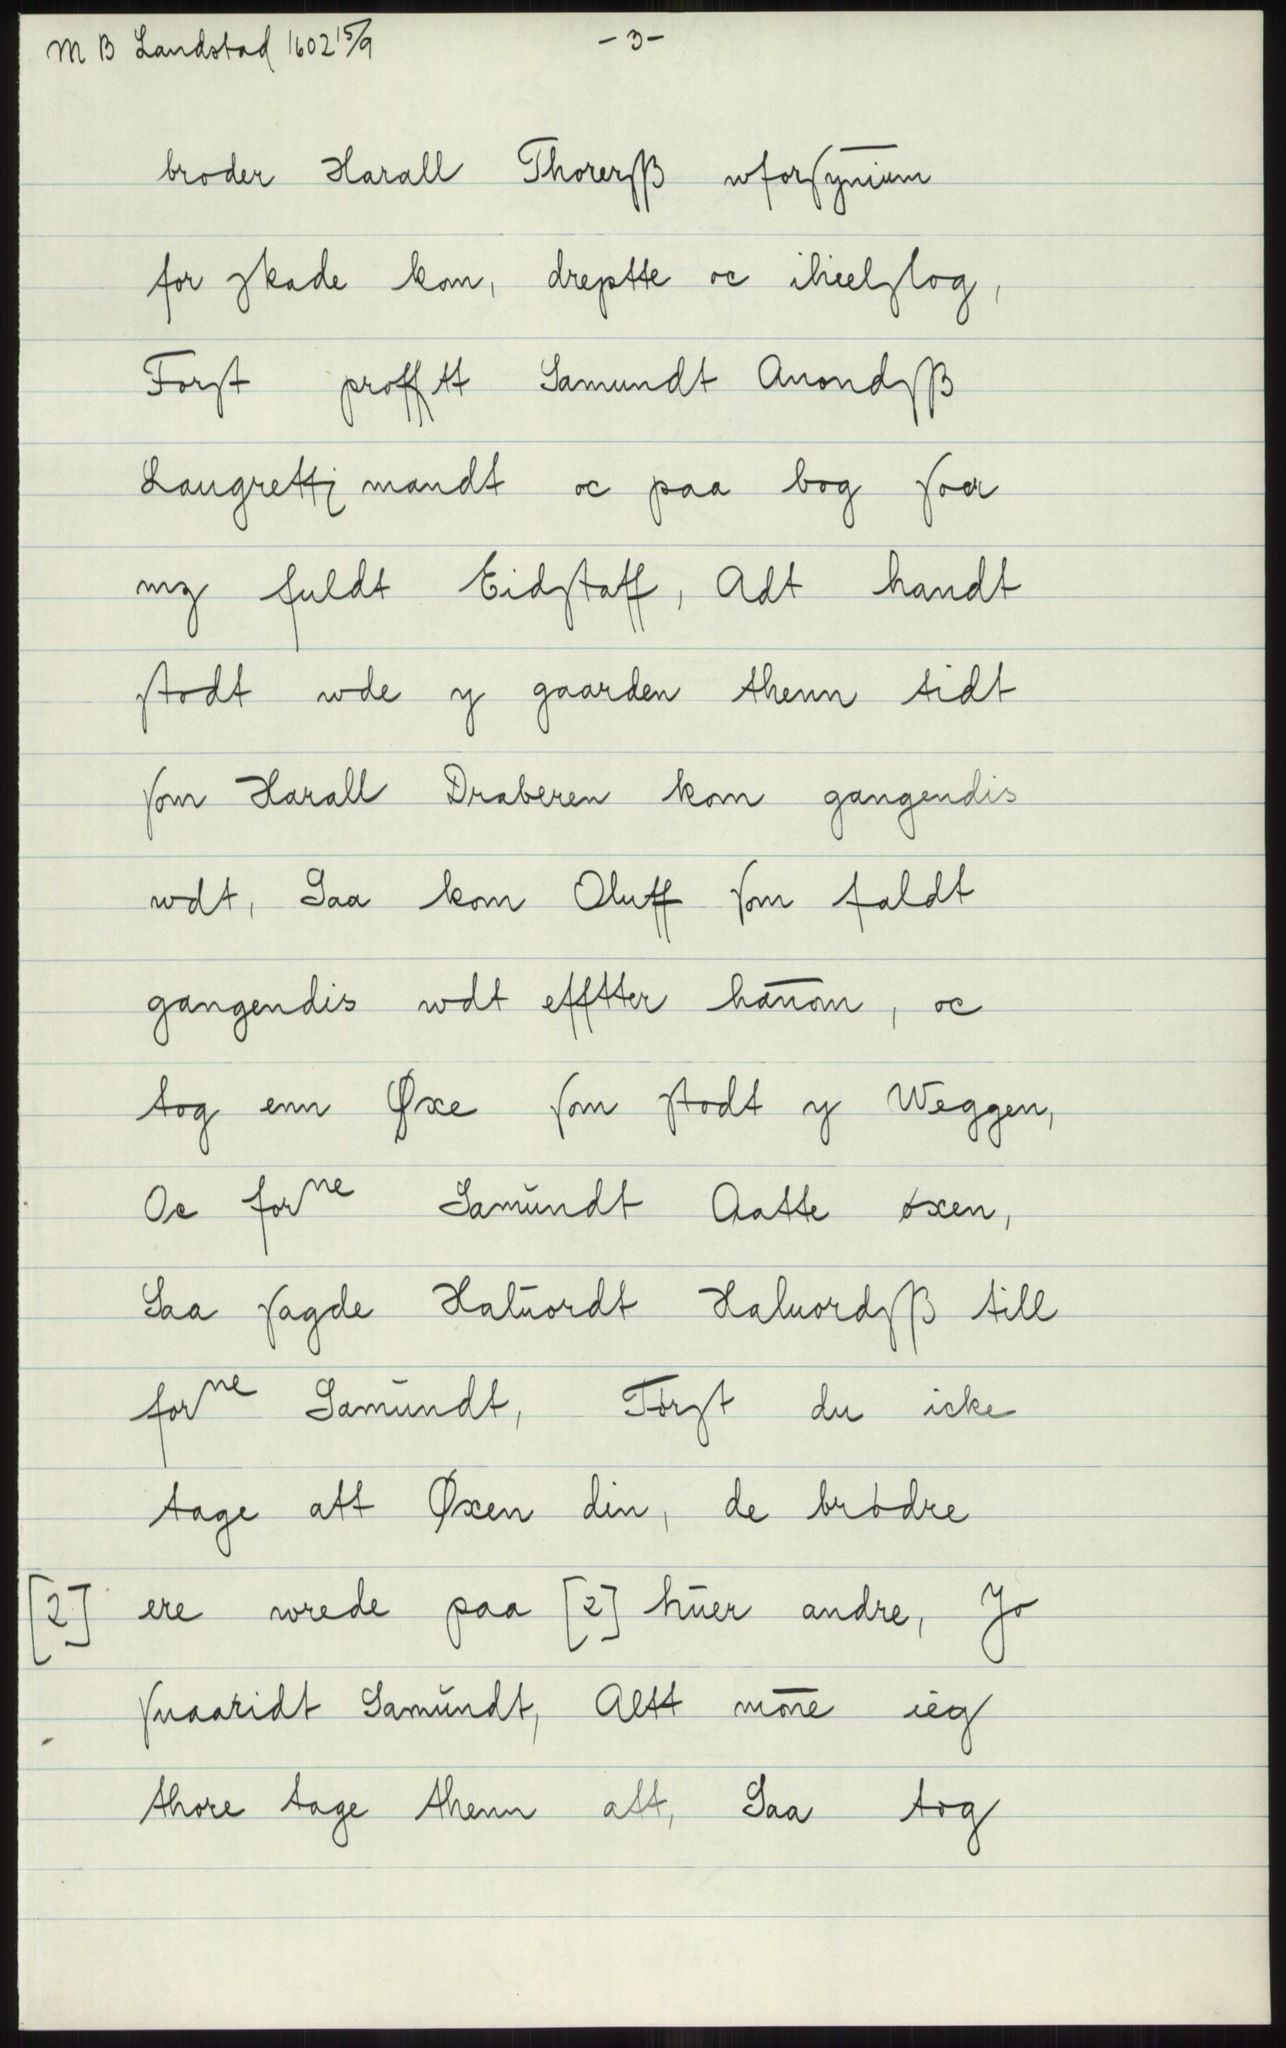 M B Landstad 1602 15/9 - 3 -
broder Harall Thorersß wforsynium
for skade kom, dreptte oc ihielslog,
Forst proffstt Samundt Anondsß
Laugrettz mandt oc paa bog soer
mz fuldt Eidstaff, Adt handt
stodt wde y gaarden thenn tidt
som Harall Draberen kom gangendis
wdt, Saa kom Oluff som faldt
gangendis wdt efftter hānom, oc
tog enn Øxe som stodt y Weggen,
Oc forne Samŭndt Aatte øxen,
Saa sagde Halŭordt Haluordsß till
forne Samŭndt, Tørst du icke
tage att Øxen din, de brødre
[2] ere wrede paa [2] hŭer andre, Jo
suaaridt Samŭndt, Altt mōne ieg
thore tage thenn att, Saa tog